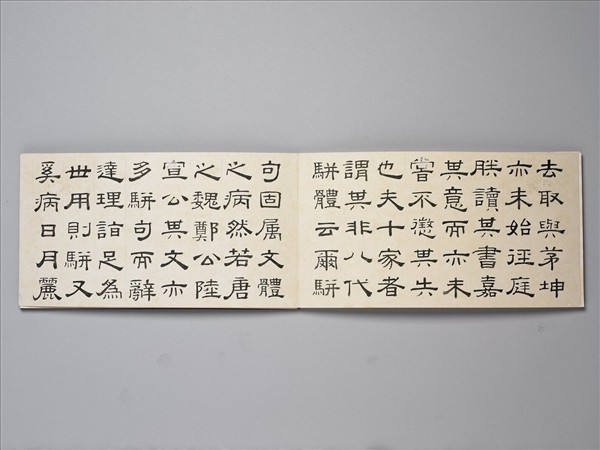 去取與茅坤
亦未始徑庭
朕讀其書嘉
其意而亦未
嘗不懲其失
也夫十家者
謂其非八代
駢體云爾駢
句固属文體
之病然若唐
之魏鄭公陸
宣公其文亦
多駢句而辭
達理詣足為
世用則駢又
奚病日月麗